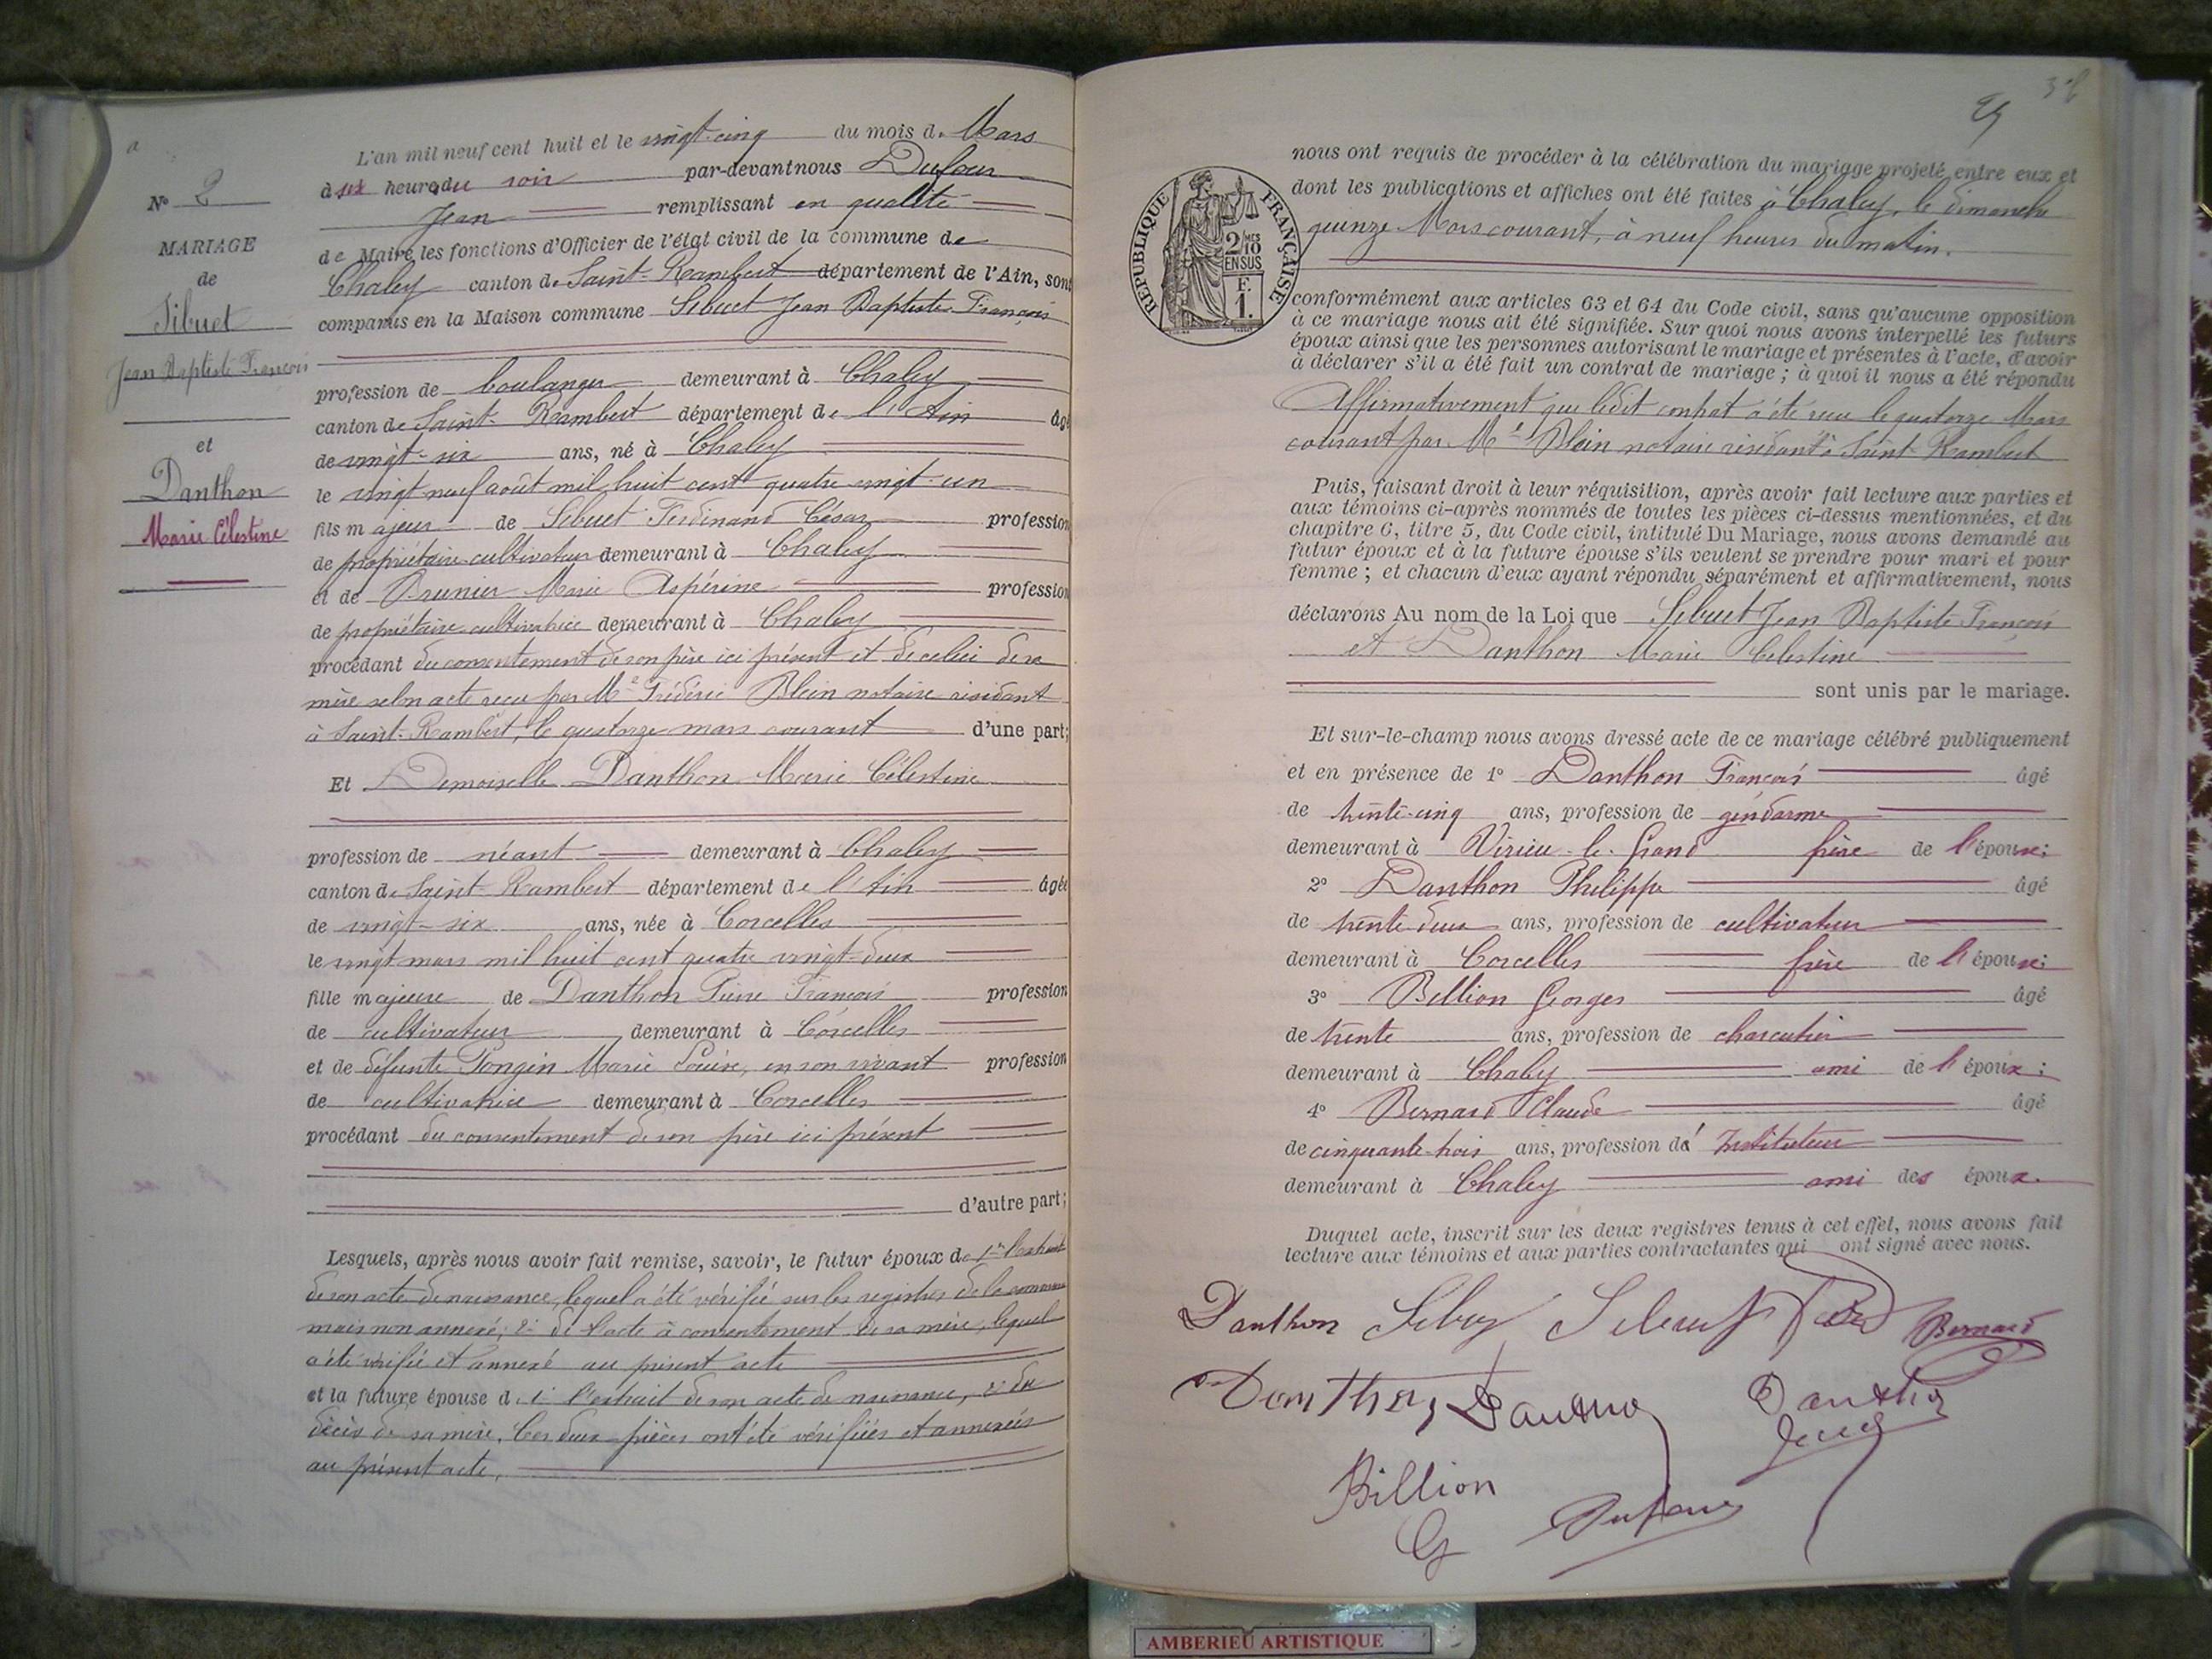 N° 2
MARIAGE
de
Sibuet
Jean Baptiste François
et
Danthon
Marie Célestine
L'an mil neuf cent huit et le vingt-cinq du mois de Mars
à six heures du soir par-devant nous Dufour
Jean remplissant en qualité
de Maire les fonctions d'Officier de l'état civil de la commune de
Chaley canton de Saint-Rambert département de l'Ain, sont
comparus en la Maison commune Sibuet Jean Baptiste François
profession de boulanger demeurant à Chaley
canton de Saint-Rambert département de l'Ain âgé
de vingt-six ans, né à Chaley
le vingt neuf août mil huit cent quatre vingt-un
fils majeur de Sibuet Ferdinand César profession
de propriétaire cultivateur demeurant à Chaley
et de Brunier Marie Aspérine profession
de propriétaire cultivatrice demeurant à Chaley
procédant du consentement de son père ici présent et de celui de sa
mère selon acte reçu par Me Frédéric Blein notaire résidant
à Saint-Rambert, le quatorze mars courant d'une part;
Et Demoiselle Danthon Marie Célestine
profession de néant demeurant à Chaley
canton de Saint-Rambert département de l'Ain âgée
de vingt-six ans, née à Corcelles
le vingt mars mil huit cent quatre vingt-deux
fille majeure de Danthon Pierre François profession
de cultivateur demeurant à Corcelles
et de défunte Pongin Marie Louise, en son vivant profession
de cultivatrice demeurant à Corcelles
procédant du consentement de son père ici présent
d'autre part;
Lesquels, après nous avoir fait remise, savoir, le futur époux de 1° l'extrait
de son acte de naissance, lequel a été vérifié sur les registres de la commune
mais non annexé; 2° de l'acte à consentement de sa mère, lequel
a été vérifié et annexé au présent acte
et la future épouse de 1° l'extrait de son acte de naissance, 2° du
décès de sa mère. Ces deux pièces ont été vérifiées et annexées
au présent acte.
RÉPUBLIQUE FRANÇAISE
2/10
EN SUS
F.
1.
nous ont requis de procéder à la célébration du mariage projeté entre eux et
dont les publications et affiches ont été faites à Chaley, le dimanche
quinze Mars courant, à neuf heures du matin.
conformément aux articles 63 et 64 du Code civil, sans qu'aucune opposition
à ce mariage nous ait été signifiée. Sur quoi nous avons interpellé les futurs
époux ainsi que les personnes autorisant le mariage et présentes à l'acte, d'avoir
à déclarer s'il a été fait un contrat de mariage ; à quoi il nous a été répondu
Affirmativement que ledit contrat a été reçu le quatorze Mars
courant par Me Blein notaire résidant à Saint-Rambert
Puis, faisant droit à leur réquisition, après avoir fait lecture aux parties et
aux témoins ci-après nommés de toutes les pièces ci-dessus mentionnées, et du
chapitre 6, titre 5, du Code civil, intitulé Du Mariage, nous avons demandé au
futur époux et à la future épouse s'ils veulent se prendre pour mari et pour
femme ; et chacun d'eux ayant répondu séparément et affirmativement, nous
déclarons Au nom de la Loi que Sibuet Jean Baptiste François
et Danthon Marie Célestine
sont unis par le mariage.
Et sur-le-champ nous avons dressé acte de ce mariage célébré publiquement
et en présence de 1° Danthon François âgé
de trente-cinq ans, profession de gendarme
demeurant à Virieu-le-Grand frère de l'épouse;
2° Danthon Philippe âgé
de trente deux ans, profession de cultivateur
demeurant à Corcelles frère de l'épouse;
3° Billion Georges âgé
de trente ans, profession de charcutier
demeurant à Chaley ami de l'époux ;
4° Bernard Claude âgé
de cinquante-trois ans, profession d' Instituteur
demeurant à Chaley ami des époux.
Duquel acte, inscrit sur les deux registres tenus à cet effet, nous avons fait
lecture aux témoins et aux parties contractantes qui ont signé avec nous.
Danthon Sibuet Sibuet Bernard
Danthon Danthon Danthon
Billion
G Dufour
AMBERIEU ARTISTIQUE